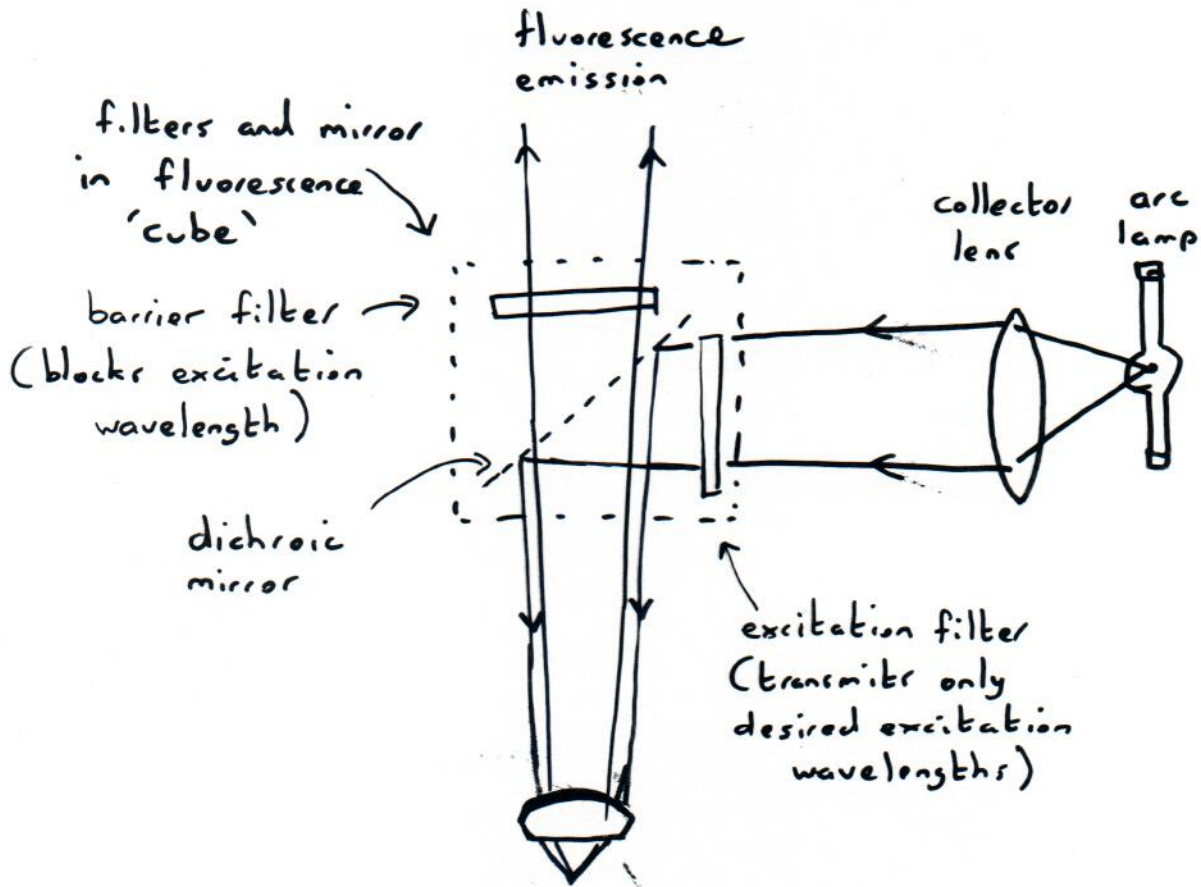 fluorescence
emission
filters and mirror
in fluorescence
'cube'
barrier filter
(blocks excitation
wavelength)
dichroic
mirror
collector
lens
arc
lamp
excitation filter
(transmits only
desired excitation
wavelengths)